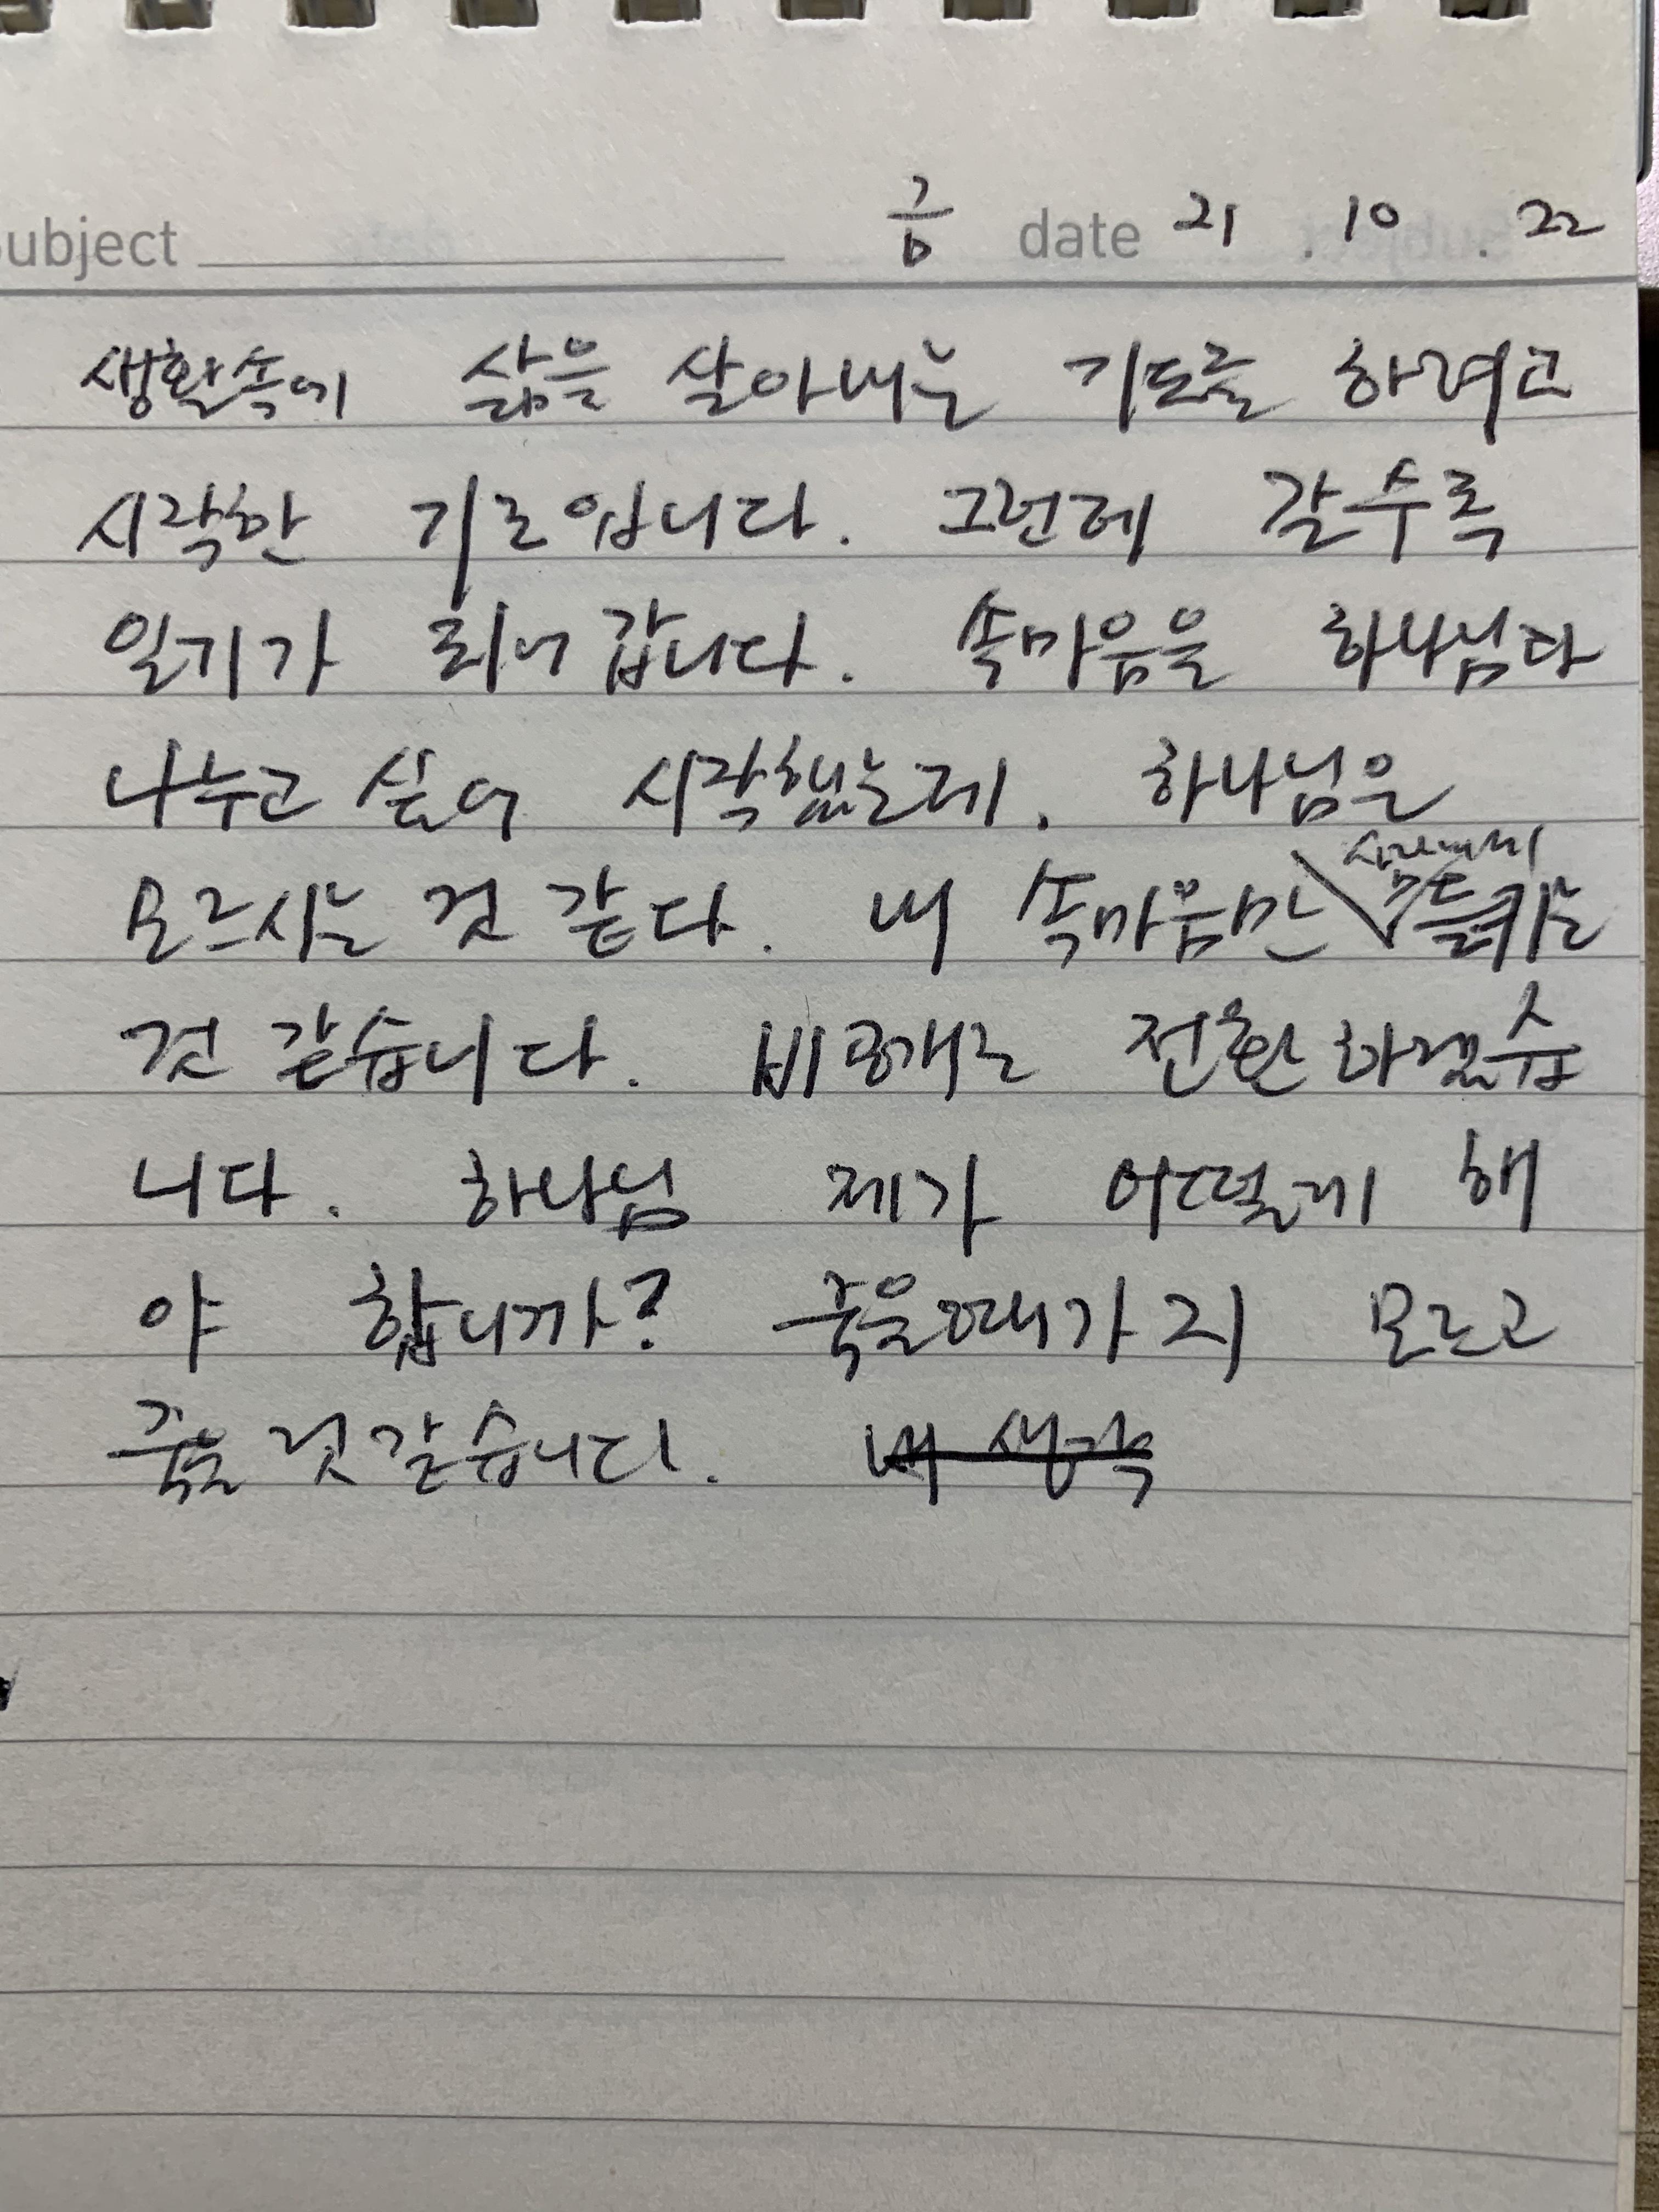 Subject 금 date 21 . 10 . 22
생활속에 삶을 살아내는 기도를 하려고
시작한 기도입니다. 그런데 갈수록
일기가 되어 갑니다. 속마음을 하나님과
나누고 싶어 시작했는데. 하나님은
모르시는 것 같다. 내 속마음만 사람에게 들키는
것 같습니다. 비공개로 전환하겠습
니다. 하나님 제가 어떻게 해
야 합니까? 죽을때가지 모르고
죽을 것 같습니다. 내 생각